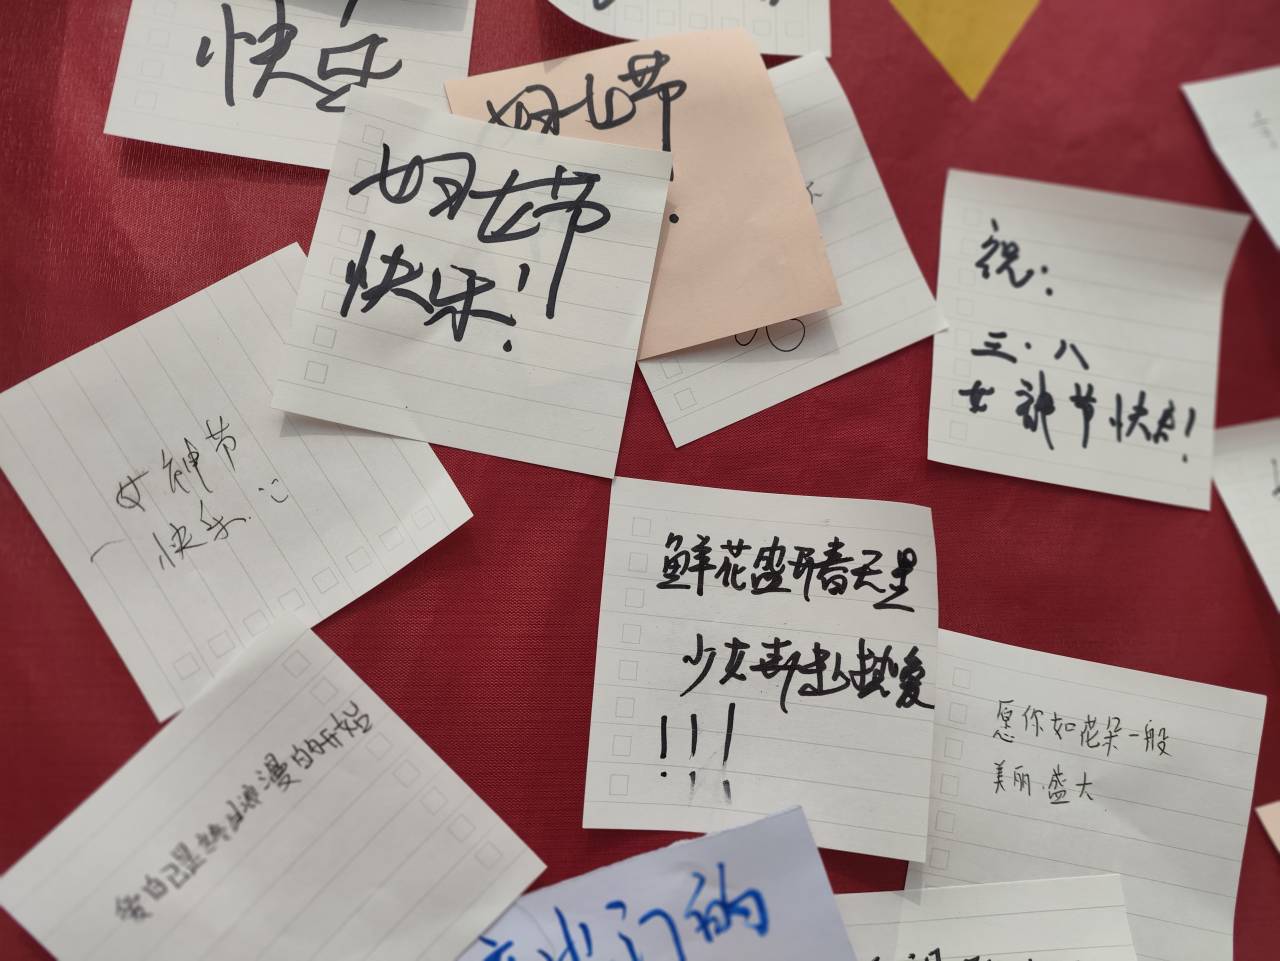 快乐
妇女节
妇女节
快乐!
祝:
三·八
女神节快乐!
女神节
快乐
鲜花盛开春天里
少女奔赴热爱
!!!
愿你如花朵一般
美丽盛大
爱自己是终生浪漫的开始
们的